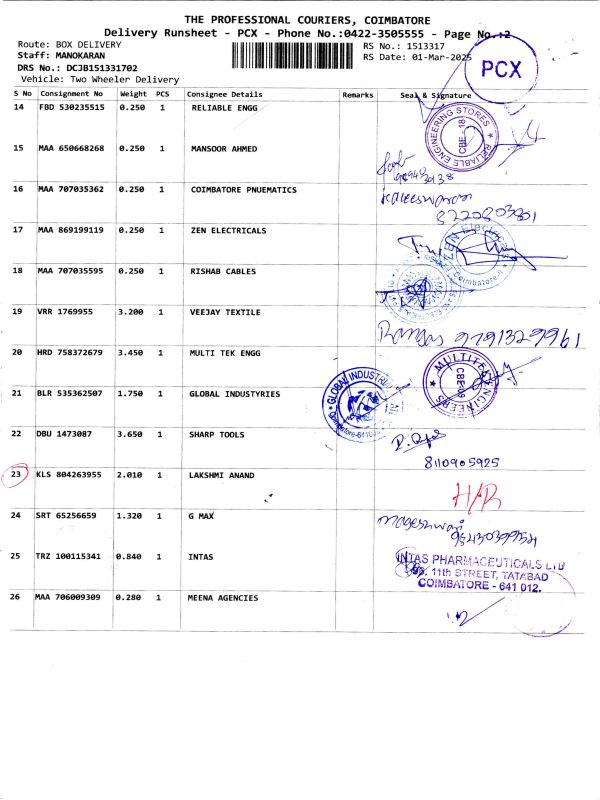 THE PROFESSIONAL COURIERS, COIMBATORE
Delivery Runsheet - PCX - Phone No.:0422-3505555 - Page No.:2
Route: BOX DELIVERY
RS No.: 1513317
Staff: MANOKARAN
RS Date: 01-Mar-2025
DRS No.: DCJB151331702
PCX
Vehicle: Two Wheeler Delivery
S No Consignment No Weight PCS Consignee Details Remarks Seal & Signature
14 FBD 530235515 0.250 1 RELIABLE ENGG
RELIABLE ENGINEERING STORES CBE-18
15 MAA 650668268 0.250 1 MANSOOR AHMED
16 MAA 707035362 0.250 1 COIMBATORE PNUEMATICS
Kaleeswaran
17 MAA 869199119 0.250 1 ZEN ELECTRICALS
ZEN Electricals Coimbatore
18 MAA 707035595 0.250 1 RISHAB CABLES
19 VRR 1769955 3.200 1 VEEJAY TEXTILE
20 HRD 758372679 3.450 1 MULTI TEK ENGG
MULTITEK ENGINEERS
21 BLR 535362507 1.750 1 GLOBAL INDUSTYRIES
GLOBAL INDUSTRI
22 DBU 1473087 3.650 1 SHARP TOOLS
8110905925
23 KLS 804263955 2.010 1 LAKSHMI ANAND
H/R
24 SRT 65256659 1.320 1 G MAX
Mageshwari
25 TRZ 100115341 0.840 1 INTAS
INTAS PHARMACEUTICALS LTD
11th STREET, TATABAD
COIMBATORE - 641 012.
26 MAA 706009309 0.280 1 MEENA AGENCIES